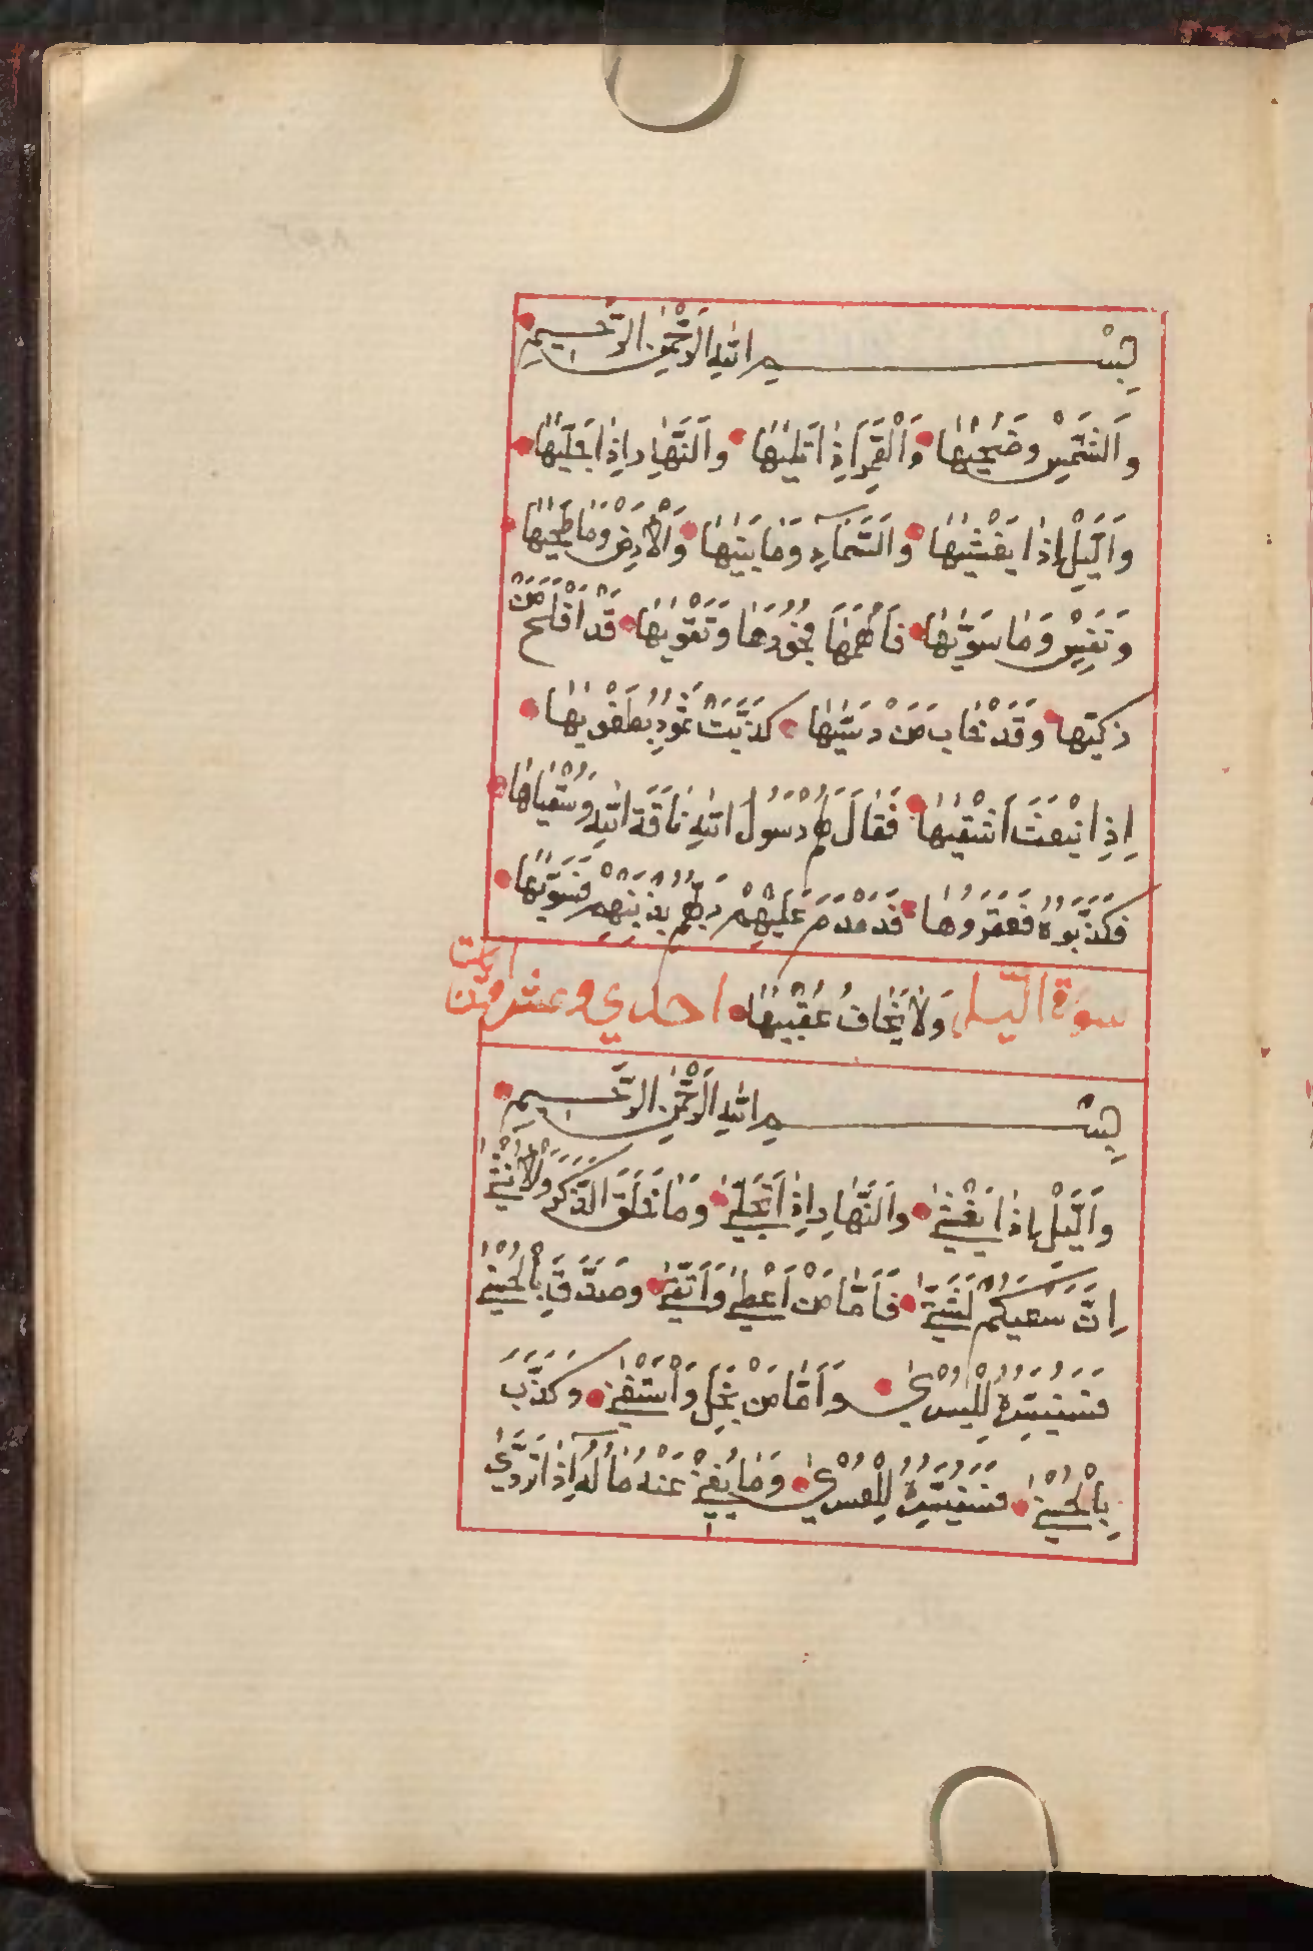 بِسْمِ اللهِ الرَّحْمٰنِ الرَّحِيمِ
وَالشَّمْسِ وَضُحٰيهَا وَالْقَمَرِ اِذَا تَلٰيهَا وَالنَّهَارِ اِذَا جَلّٰيهَا
وَالَّيْلِ اِذَا يَغْشٰيهَا وَالسَّمَآءِ وَمَا بَنٰيهَا وَالْاَرْضِ وَمَا طَحٰيهَا
وَنَفْسٍ وَمَا سَوّٰيهَا فَاَلْهَمَهَا فُجُورَهَا وَتَقْوٰيهَا قَدْ اَفْلَحَ مَنْ
زَكّٰيهَا وَقَدْ خَابَ مَنْ دَسّٰيهَا كَذَّبَتْ ثَمُودُ بِطَغْوٰيهَا
اِذِ انْبَعَثَ اَشْقٰيهَا فَقَالَ لَهُمْ رَسُولُ اللهِ نَاقَةَ اللهِ وَسُقْيَاهَا
فَكَذَّبُوهُ فَعَقَرُوهَا فَدَمْدَمَ عَلَيْهِمْ رَبُّهُمْ بِذَنْبِهِمْ فَسَوّٰيهَا
سورة الّيل وَلَا يَخَافُ عُقْبٰيهَا احدي وعشرون ايت
بِسْمِ اللهِ الرَّحْمٰنِ الرَّحِيمِ
وَالَّيْلِ اِذَا يَغْشٰى وَالنَّهَارِ اِذَا تَجَلّٰى وَمَا خَلَقَ الذَّكَرَ وَالْاُنْثٰى
اِنَّ سَعْيَكُمْ لَشَتّٰى فَاَمَّا مَنْ اَعْطٰى وَاتَّقٰى وَصَدَّقَ بِالْحُسْنٰى
فَسَنُيَسِّرُهُ لِلْيُسْرٰى وَاَمَّا مَنْ بَخِلَ وَاسْتَغْنٰى وَكَذَّبَ
بِالْحُسْنٰى فَسَنُيَسِّرُهُ لِلْعُسْرٰى وَمَا يُغْنٰى عَنْهُ مَالُهُ اِذَا تَرَدّٰى